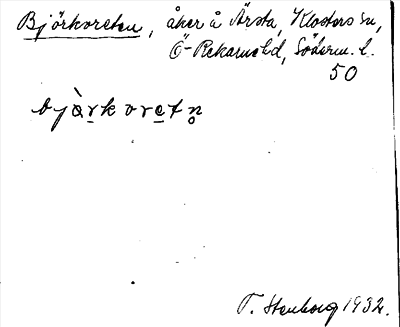 Björkoreten, åker å Årsta, Klosters sn,
Ö-Rekarne hd, Söderm. l.
50
bjàrkoretn̥
T. Stenborg 1932.